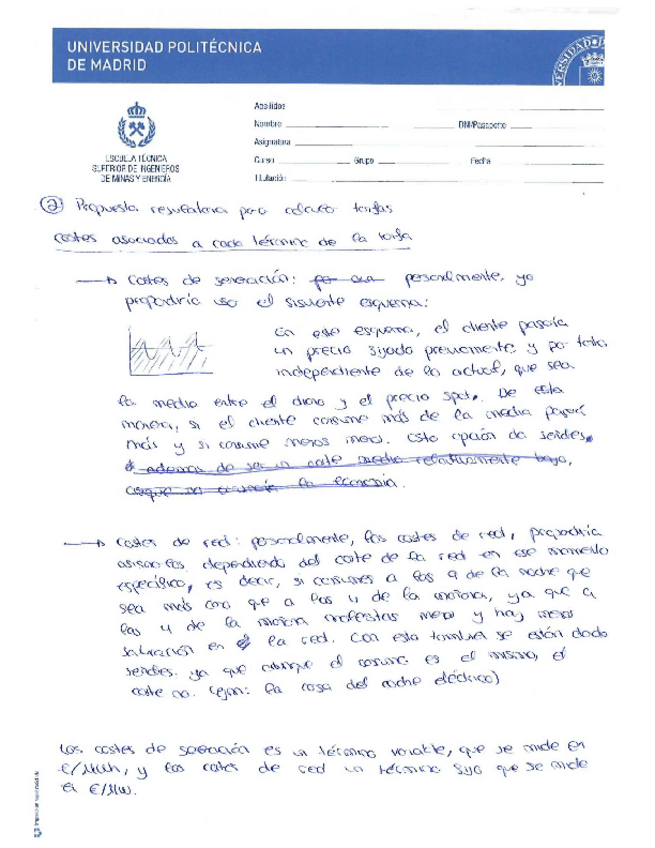 UNIVERSIDAD POLITÉCNICA
DE MADRID
Apellidos
Nombre DNI/Pasaporte
Asignatura
Curso Grupo Fecha
Titulación
ESCUELA TÉCNICA
SUPERIOR DE INGENIEROS
DE MINAS Y ENERGÍA
② Propuesta regulatoria para cálculo tarifas
costes asociados a cada término de la tarifa
→ Costes de generación: personalmente, yo
propondría uso el siguiente esquema:
En ese esquema, el cliente pagaría
un precio fijado previamente y por tanto
independiente de la actual, que sea
la media entre el diario y el precio spot. De esta
manera, si el cliente consume más de la media pagará
más y si consume menos menos. Esto opción da señales
además de ser un coste medio relativamente bajo,
la economía.
→ Costes de red: personalmente, los costes de red, propondría
asignarlos dependiendo del coste de la red en ese momento
específico, es decir, si consumes a las 9 de la noche que
sea más caro que a las 4 de la mañana, ya que a
las 4 de la mañana molestas menos y hay menos
saturación en la red. Con esto también se están dando
señales. ya que aunque el consumo es el mismo, el
coste no. (ejm: la casa del coche eléctrico)
Los costes de generación es un término variable, que se mide en
€/MWh, y los costes de red un término fijo que se mide
en €/MW.